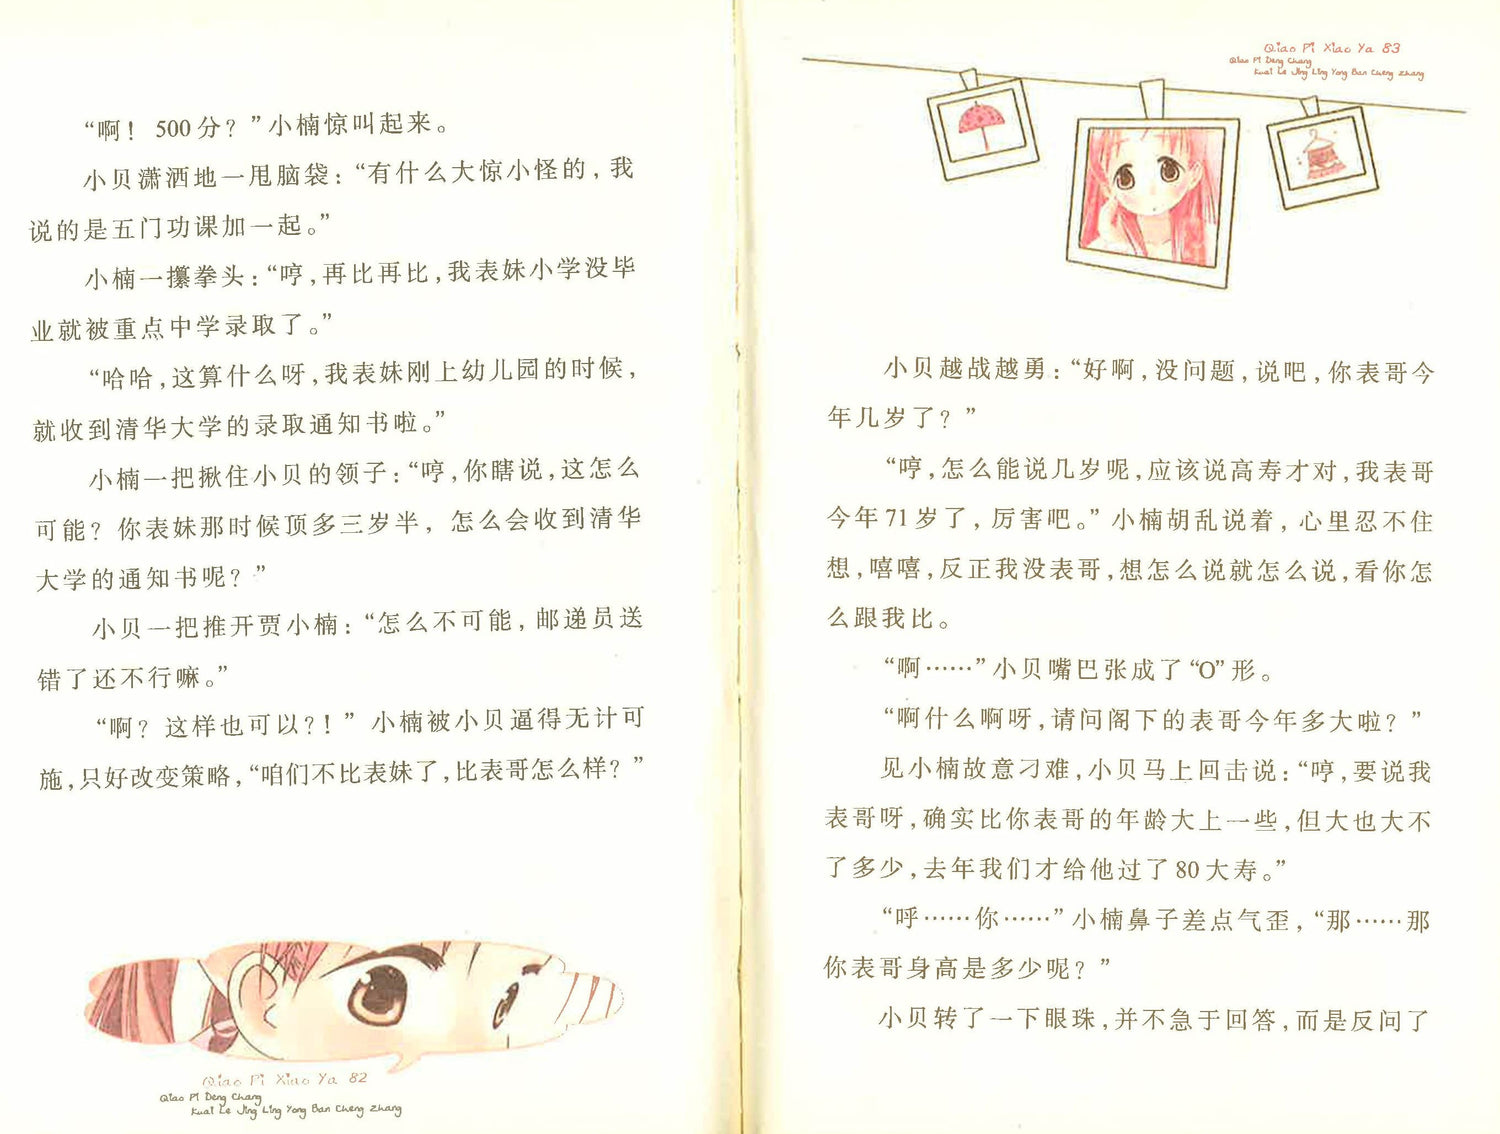 “啊！500分？”小楠惊叫起来。
小贝潇洒地一甩脑袋：“有什么大惊小怪的，我
说的是五门功课加一起。”
小楠一攥拳头：“哼，再比再比，我表妹小学没毕
业就被重点中学录取了。”
“哈哈，这算什么呀，我表妹刚上幼儿园的时候，
就收到清华大学的录取通知书啦。”
小楠一把揪住小贝的领子：“哼，你瞎说，这怎么
可能？你表妹那时候顶多三岁半，怎么会收到清华
大学的通知书呢？”
小贝一把推开贾小楠：“怎么不可能，邮递员送
错了还不行嘛。”
“啊？这样也可以？！”小楠被小贝逼得无计可
施，只好改变策略，“咱们不比表妹了，比表哥怎么样？”
Qiao Pi Xiao Ya 82
Qiao Pi Deng Chang
Kuai Le Jing Ling Yong Ban Cheng Zhang
Qiao Pi Xiao Ya 83
Qiao Pi Deng Chang
Kuai Le Jing Ling Yong Ban Cheng Zhang
小贝越战越勇：“好啊，没问题，说吧，你表哥今
年几岁了？”
“哼，怎么能说几岁呢，应该说高寿才对，我表哥
今年71岁了，厉害吧。”小楠胡乱说着，心里忍不住
想，嘻嘻，反正我没表哥，想怎么说就怎么说，看你怎
么跟我比。
“啊……”小贝嘴巴张成了“O”形。
“啊什么啊呀，请问阁下的表哥今年多大啦？”
见小楠故意刁难，小贝马上回击说：“哼，要说我
表哥呀，确实比你表哥的年龄大上一些，但大也大不
了多少，去年我们才给他过了80大寿。”
“呼……你……”小楠鼻子差点气歪，“那……那
你表哥身高是多少呢？”
小贝转了一下眼珠，并不急于回答，而是反问了